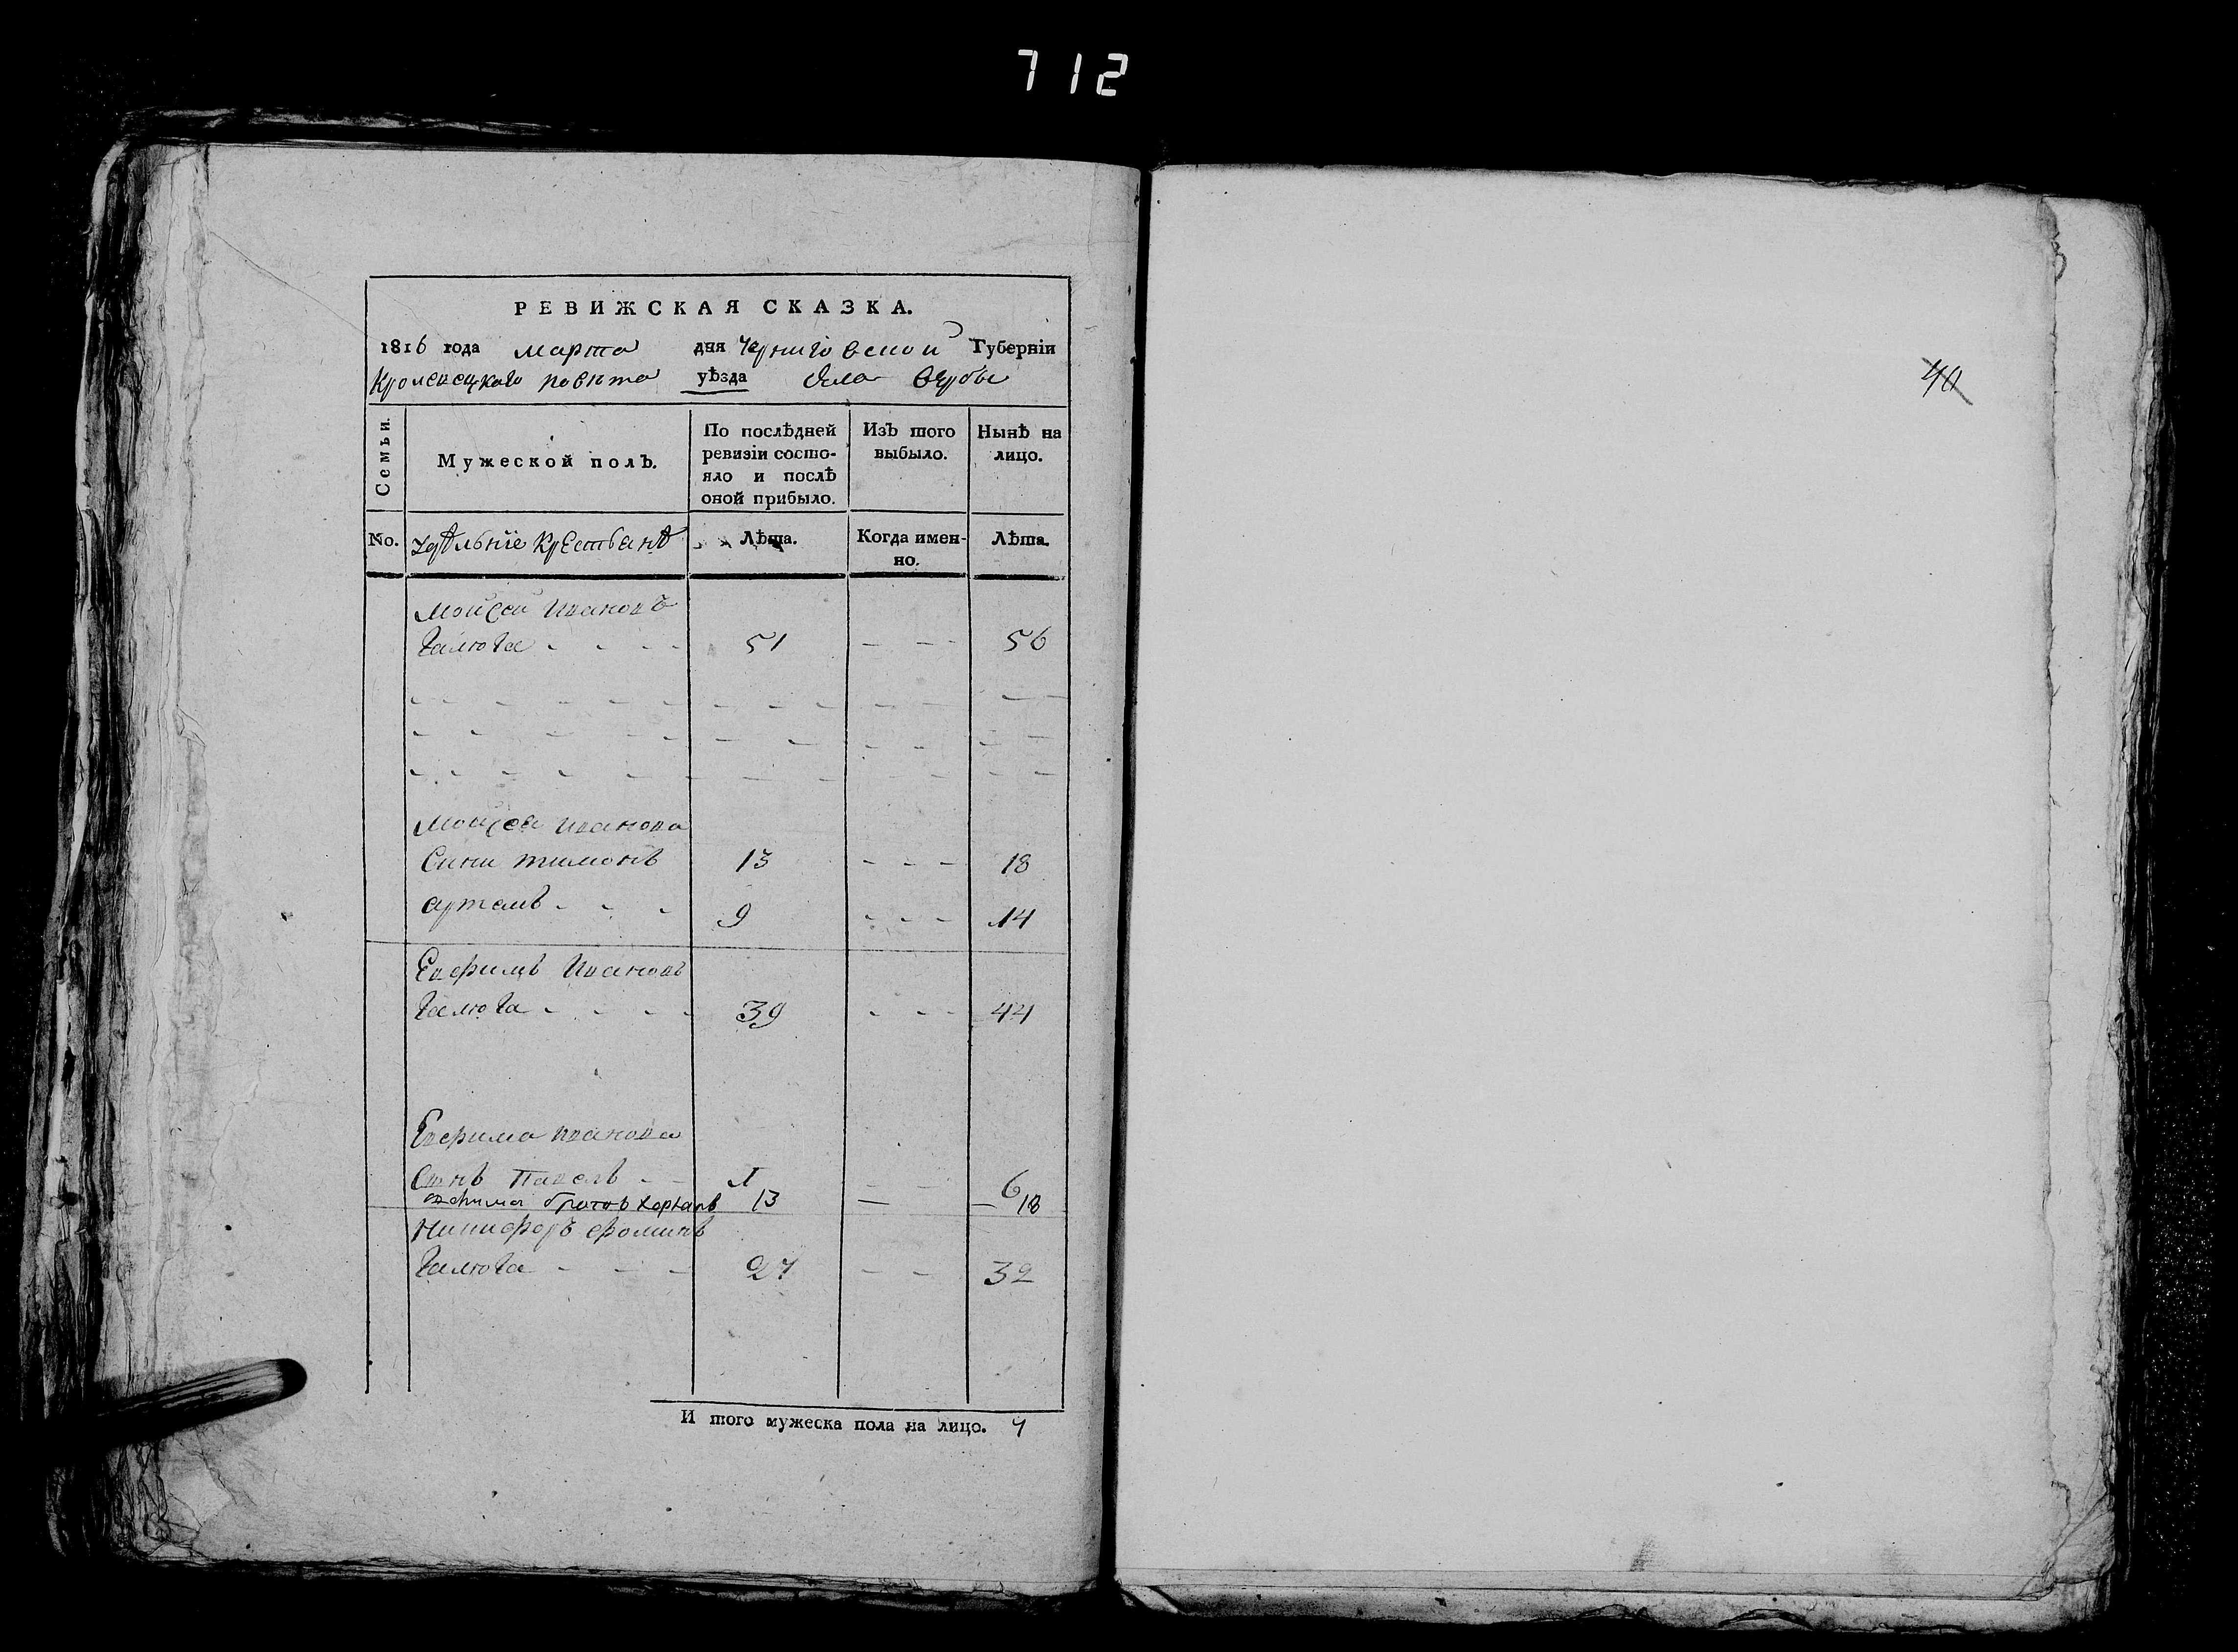 712
РЕВИЖСКАЯ СКАЗКА.
1816 года марта дня Черниговской Губерніи
Кролевецкаго повѣта уѣзда Села Вербы
40
Семьи.
Мужеской полъ.
По послѣдней ревизіи состо-
яло и послѣ
оной прибыло.
Изъ того
выбыло.
Нынѣ на
лицо.
No.
удѣльніе крестьянѣ
Лѣта.
Когда имен-
но.
Лѣта.
Мойсей Ивановъ
51 - - 56
Мойсея Иванова
Сини тимонъ 13 - - - 18
артемъ - - - 9 - - - 14
Евфимъ Ивановъ
39 - - - 44
Евфима Иванова
Синъ Павелъ - - 1 - - 6
евфима братъ 13 — — 18
Никифоръ Фоминъ
27 - - 32
И того мужеска пола на лицо. 7